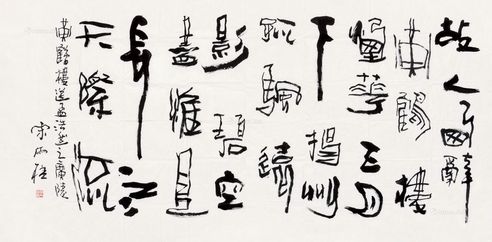 故人西辭
黃鶴樓
煙華三月
下揚州
孤颿遠
影碧空
盡惟見
長江
天際流
黃鶴樓送孟浩然之廣陵
宋雨桂